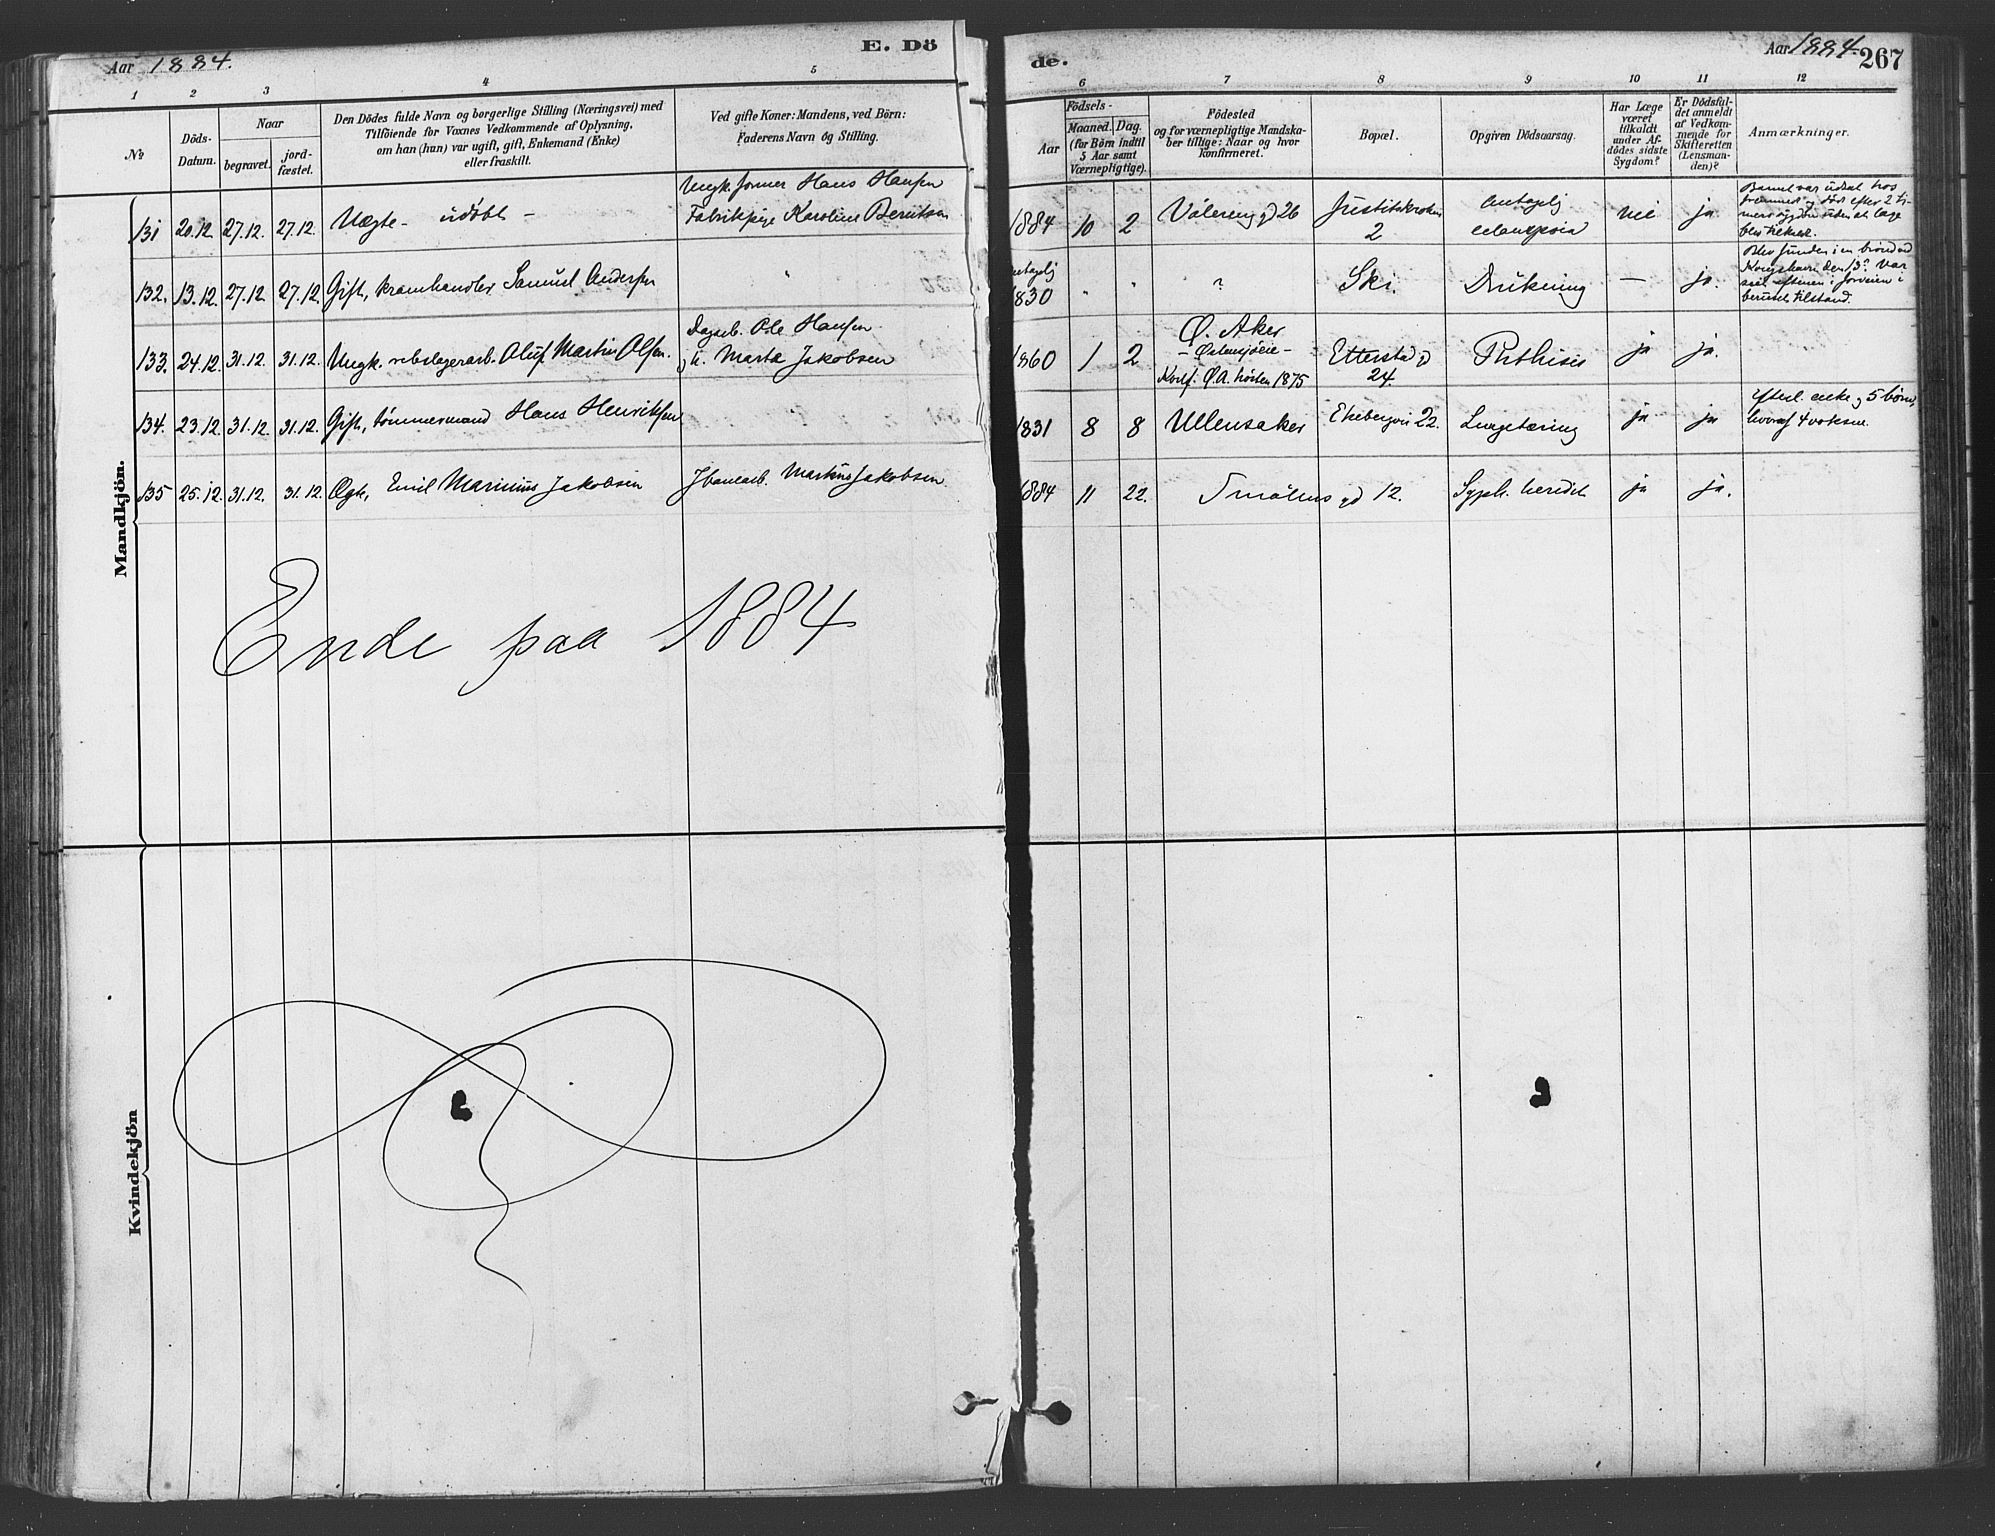 Aar 1884.
E. Dö
1 2 3 4 5
№
Döds-
Datum.
Naar
begravet.
jord-
fæstet.
Den Dödes fulde Navn og borgerlige Stilling (Næringsvei) med
Tilföiende for Voxnes Vedkommende af Oplysning,
om han (hun) var ugift, gift, Enkemand (Enke)
eller fraskilt.
Ved gifte Koner: Mandens, ved Börn:
Faderens Navn og Stilling.
Mandkjön.
131 20.12 27.12. 27.12. Uægte - udøbt -
Ungk. former Hans Hansen
Fabrikpige Karoline Berntsen
132. 13.12 27.12 27.12 Gift, kramhandler Samuel Andersen "
133. 24.12 31.12 31.12. Ungk. rebslagerarb. Oluf Martin Olsen.
Dagarb. Ole Hansen
og h. Marta Jakobsen
134. 23.12 31.12. 31.12. Gift, tømmermand Hans Henriksen
135 25.12. 31.12. 31.12. Ægte, Emil Marinius Jakobsen
Jbanearb. Martius Jakobsen
Ende paa 1884
Kvindekjön
de.
Aar 1884. 267
6 7 8 9 10 11 12
Födsels-
Aar
Maaned. Dag.
(for Börn indtil
5 Aar samt
Værnepligtige).
Födested
og for værnepligtige Mandska-
ber tillige: Naar og hvor
Konfirmeret.
Bopæl.
Opgiven Dödsaarsag.
Har Læge
været
tilkaldt
under Af-
dödes sidste
Sygdom?
Er Dödsfal-
det anmeldt
af Vedkom-
mende for
Skifteretten
(Lensman-
den)?
Anmærkninger.
1884 10 2 Vålereng gd 26
Justitskroken
2
antagelig
eclampsia
nei ja
Barnet var udsat hos
fremmed og døde efter 2 ti-
mers sygdom uden at læge
blev tilkaldt.
antagelig
1830 " " ? Ski. Drukning — ja.
Blev funden i en brønd ved
Kongshavn den 13de. Var
i
beruset tilstand.
1860 1 2
Ø. Aker
- Østensjøeie -
Konf. Ø.A. høsten 1875
Etterstad gd
24.
Phthisis ja ja.
1831 8 8 Ullensaker Ekebergvei 22. Lungetæring ja ja
Efterl. enke og 5 børn,
hvoraf 4 voksne.
1884 11 22. Smålens gd 12. Syph. heredit ja ja.